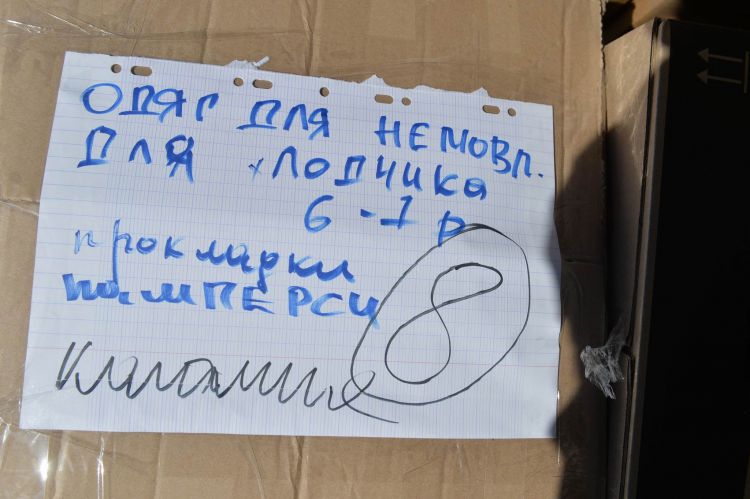 ОДЯГ ДЛЯ НЕМОВЛ.
ДЛЯ ХЛОПЧИКА
6-1 р
прокладки
памПЕРСИ
8